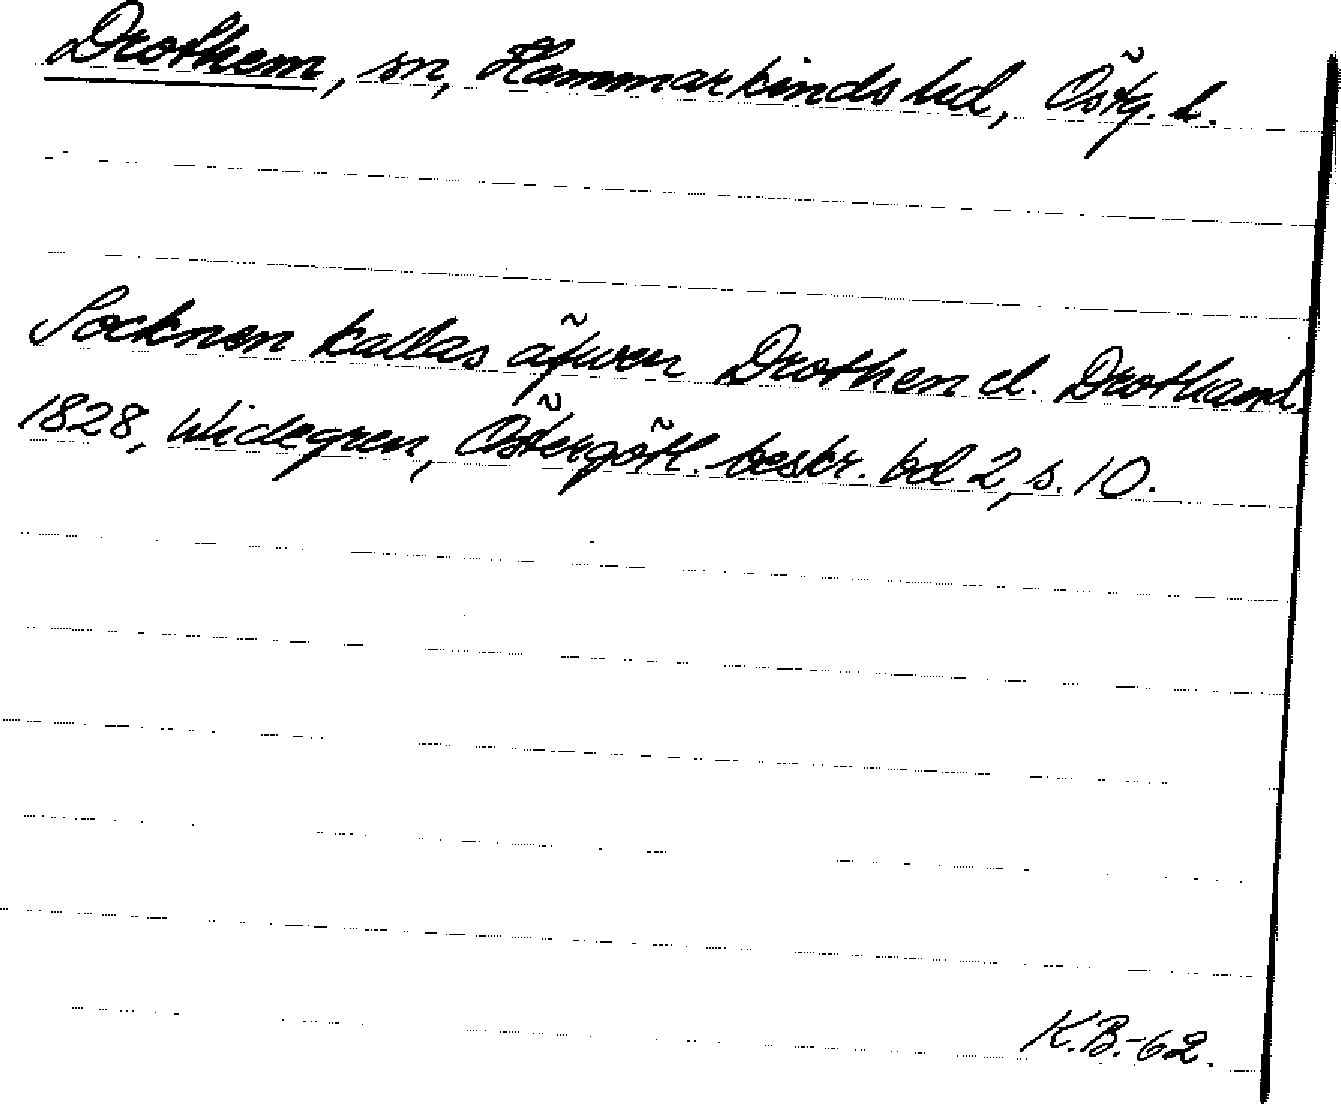 Drothem, sn, Hammarkinds hd, Östg. l.
Socknen kallas äfwen Drothen el. Drothand.
1828, Widegren, Östergötl. beskr. bd 2, s. 10.
K.B.-62.